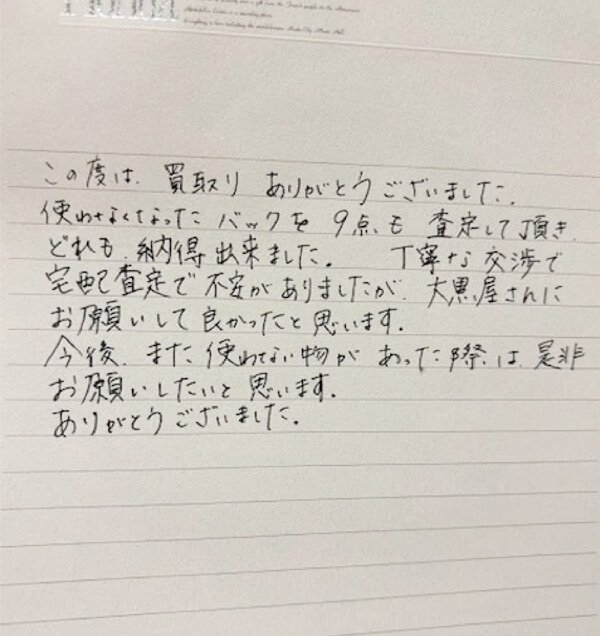 この度は、買取り ありがとうございました。
使わなくなった バックを 9点も 査定して頂き、
どれも、納得 出来ました。 丁寧な 交渉で
宅配査定で 不安がありましたが、大黒屋さんに
お願いして 良かったと 思います。
今後、また 使わない物が あった際は、是非
お願いしたいと 思います。
ありがとうございました。